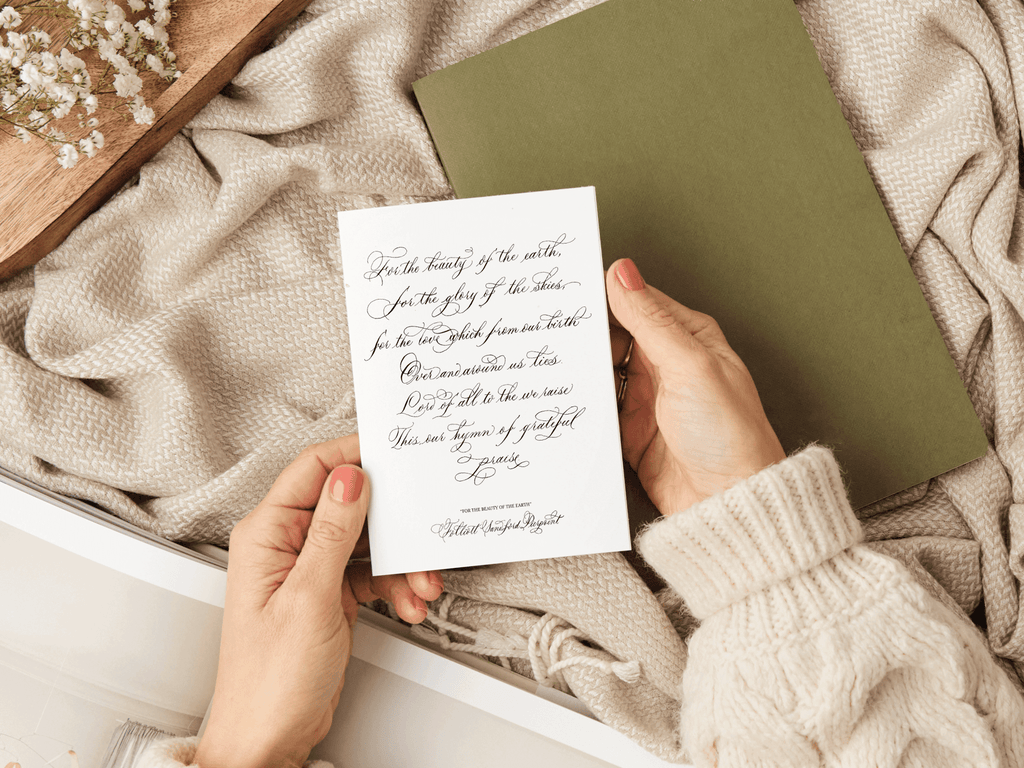 For the beauty of the earth,
for the glory of the skies,
for the love which from our birth
Over and around us lies
Lord of all to the we raise
This our hymn of grateful
praise
"FOR THE BEAUTY OF THE EARTH"
Folliott Sandford Pierpoint